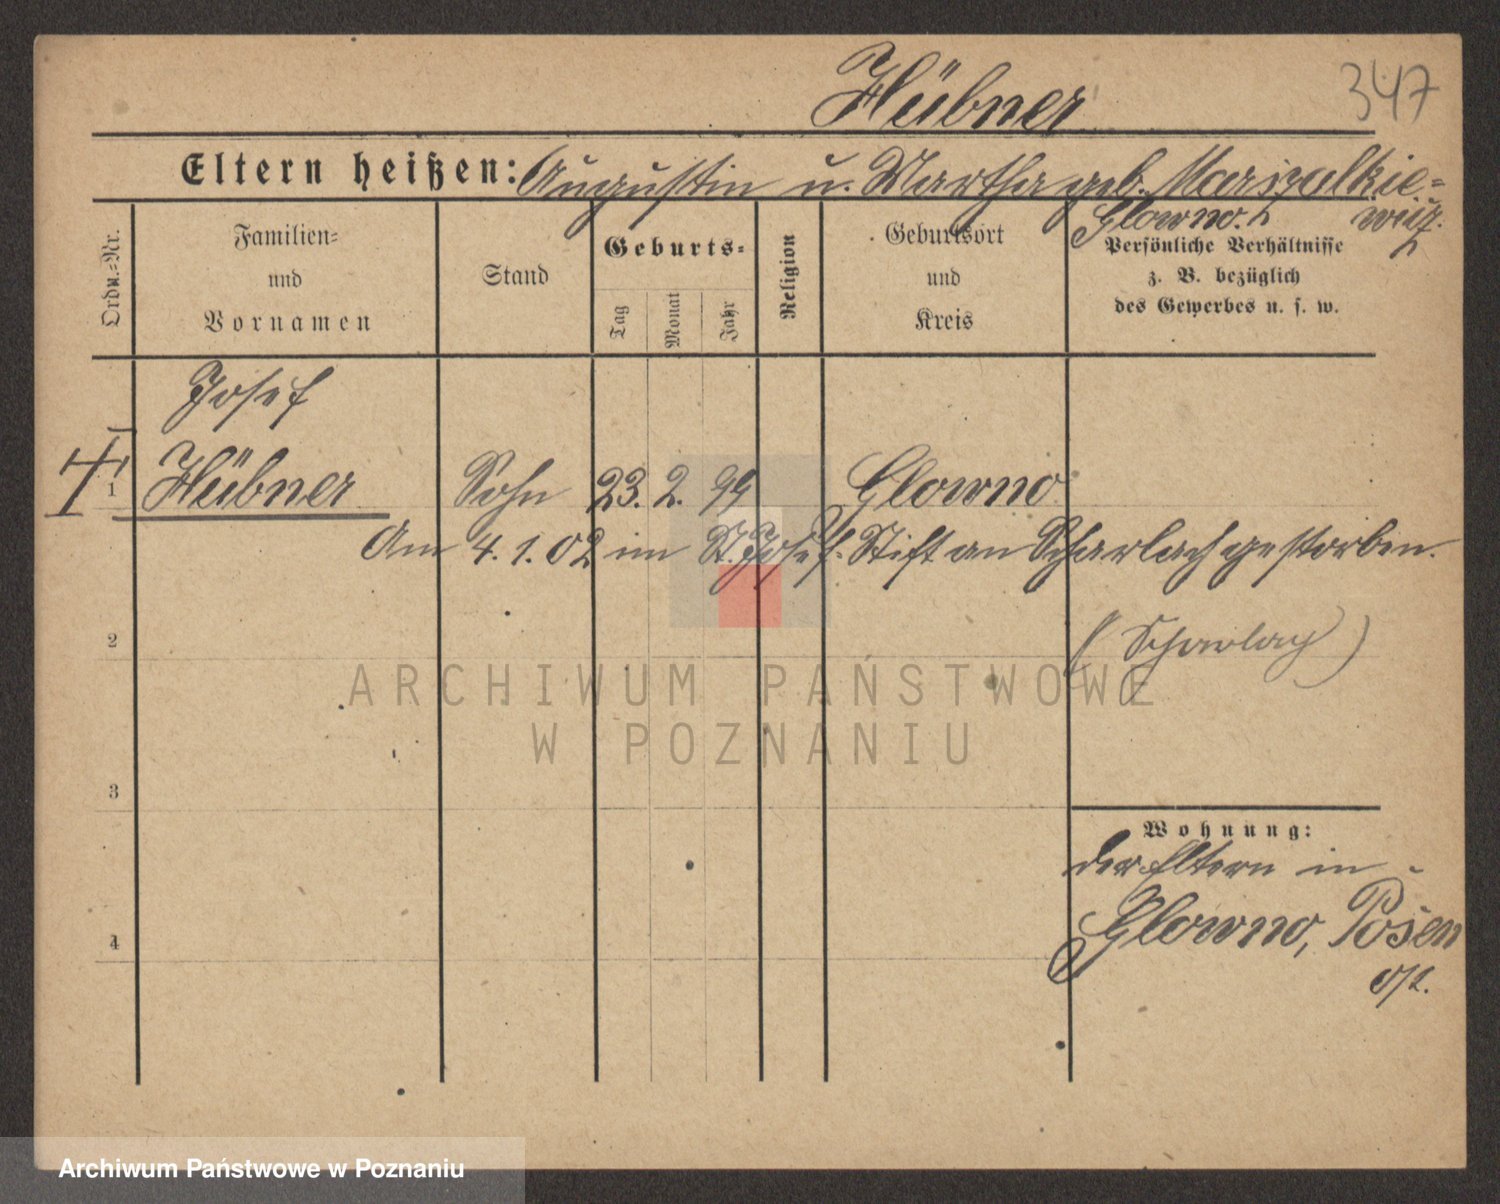 Hübner 347
Eltern heißen: Augustin u. Martha geb. Marszalkie=
Glowno. wicz.
Ordn.=Nr.
Familien=
und
Vornamen
Stand
Geburts=
Tag
Monat
Jahr
Religion
Geburtsort
und
Kreis
Persönliche Verhältnisse
z. B. bezüglich
des Gewerbes u. s. w.
Josef
1 Hübner Sohn 23. 2. 99 Glowno
Am 4. 1. 02 im St. Josef. Stift an Scharlach gestorben.
2 (Scharlach)
3
Wohnung:
der Eltern in
4 Glowno, Posen
O/2.
ARCHIWUM PAŃSTWOWE
W POZNANIU
Archiwum Państwowe w Poznaniu